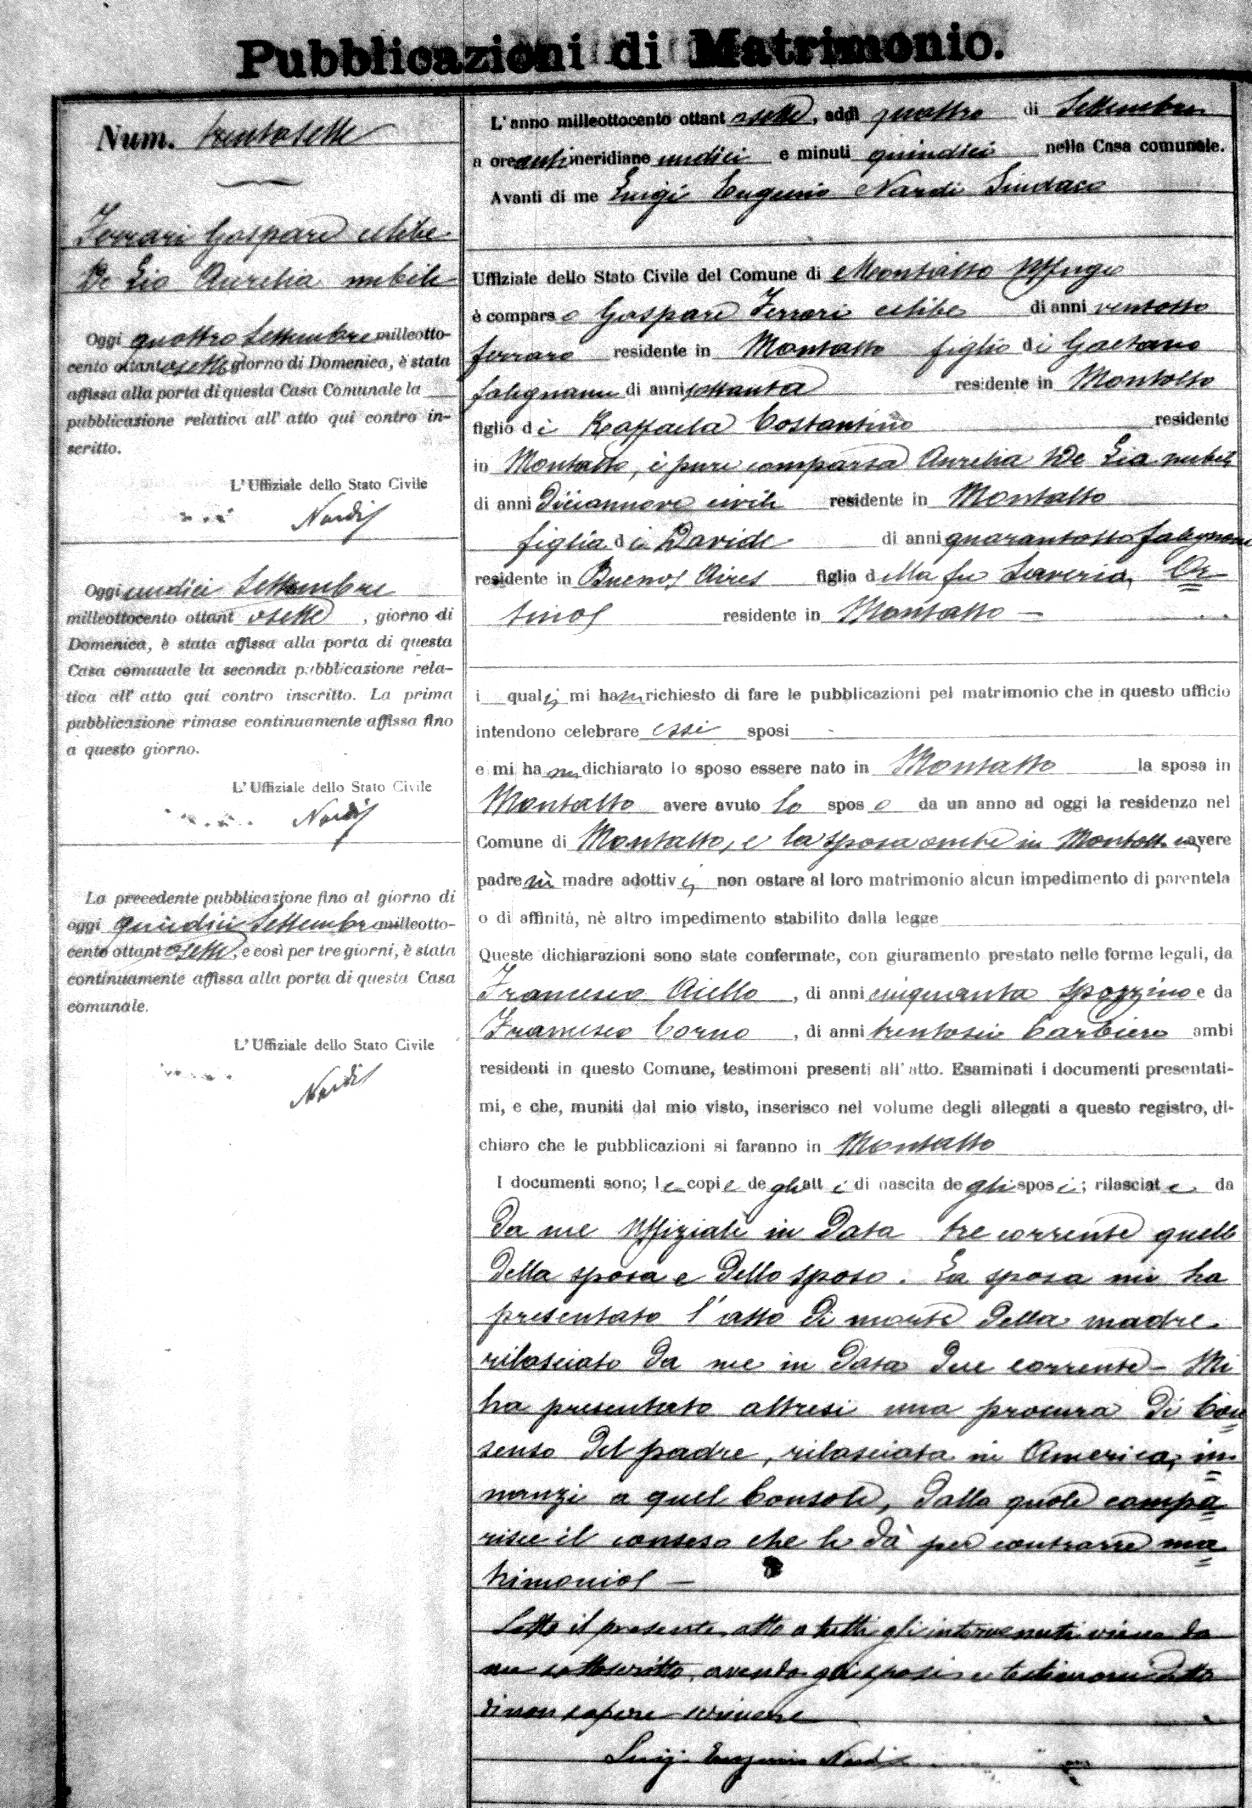 Pubblicazioni di Matrimonio.
Num. trentasette
Ferrari Gaspare celibe
De Lio Aurelia nubile
Oggi quattro Settembre milleotto-
cento ottantasette giorno di Domenica, è stata
affissa alla porta di questa Casa Comunale la
pubblicazione relativa all' atto qui contro in-
scritto.
L'Uffiziale dello Stato Civile
Nardi
Oggi undici Settembre
milleottocento ottantasette, giorno di
Domenica, è stata affissa alla porta di questa
Casa comunale la seconda pubblicazione rela-
tica all' atto qui contro inscritto. La prima
pubblicazione rimase continuamente affissa fino
a questo giorno.
L'Uffiziale dello Stato Civile
Nardi
La precedente pubblicazione fino al giorno di
oggi quindici Settembre milleotto-
cento ottantasette, e così per tre giorni, è stata
continuamente affissa alla porta di questa Casa
comunale.
L'Uffiziale dello Stato Civile
Nardi
L'anno milleottocento ottantasette, addì quattro di Settembre
a ore antimeridiane undici e minuti quindici nella Casa comunale.
Avanti di me Luigi Eugenio Nardi Sindaco
Uffiziale dello Stato Civile del Comune di Montalto Uffugo
è comparso Gaspare Ferrari celibe di anni ventotto
ferraro residente in Montalto figlio di Gaetano
falegname di anni settanta residente in Montalto
figlio di Raffaela Costantino residente
in Montalto, è pure comparsa Aurelia De Lia nubile
di anni diciannove civile residente in Montalto
figlia di Davide di anni quarantotto falegname
residente in Buenos Aires figlia della fu Saveria
residente in Montalto
i quali mi hanno richiesto di fare le pubblicazioni pel matrimonio che in questo ufficio
intendono celebrare essi sposi
e mi hanno dichiarato lo sposo essere nato in Montalto la sposa in
Montalto avere avuto lo sposo da un anno ad oggi la residenza nel
Comune di Montalto, e la sposa anche in Montalto avere
padre nè madre adottivi, non ostare al loro matrimonio alcun impedimento di parentela
o di affinità, nè altro impedimento stabilito dalla legge
Queste dichiarazioni sono state confermate, con giuramento prestato nelle forme legali, da
Francesco Aiello, di anni cinquanta spazzino e da
Francesco Corno, di anni trentasei barbiere ambi
residenti in questo Comune, testimoni presenti all' atto. Esaminati i documenti presentati-
mi, e che, muniti dal mio visto, inserisco nel volume degli allegati a questo registro, di-
chiaro che le pubblicazioni si faranno in Montalto
I documenti sono; le copie degli atti di nascita degli sposi; rilasciate da
da me Uffiziale in data tre corrente quelle
della sposa e dello sposo. La sposa mi ha
presentato l'atto di morte della madre
rilasciato da me in data due corrente - Mi
ha presentato altresi una procura di Con
senso del padre, rilasciata in America, in
nanzi a quel Console, dalla quale compa
risce il conseso che le dà per contrarre ma
trimonio -
Letto il presente atto a tutti gli intervenuti viene da
me sottoscritto, avendo gli sposi e testimoni detto
di non sapere scrivere
Luigi Eugenio Nardi